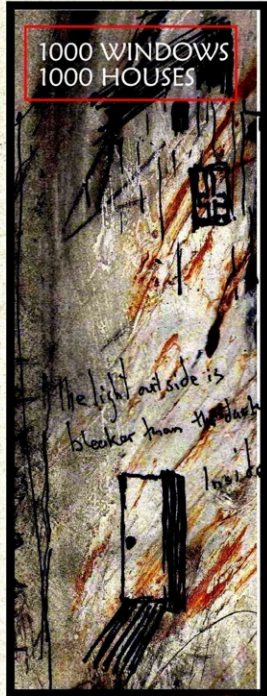 1000 WINDOWS
1000 HOUSES
The light outside is
bleaker than the dark
Inside